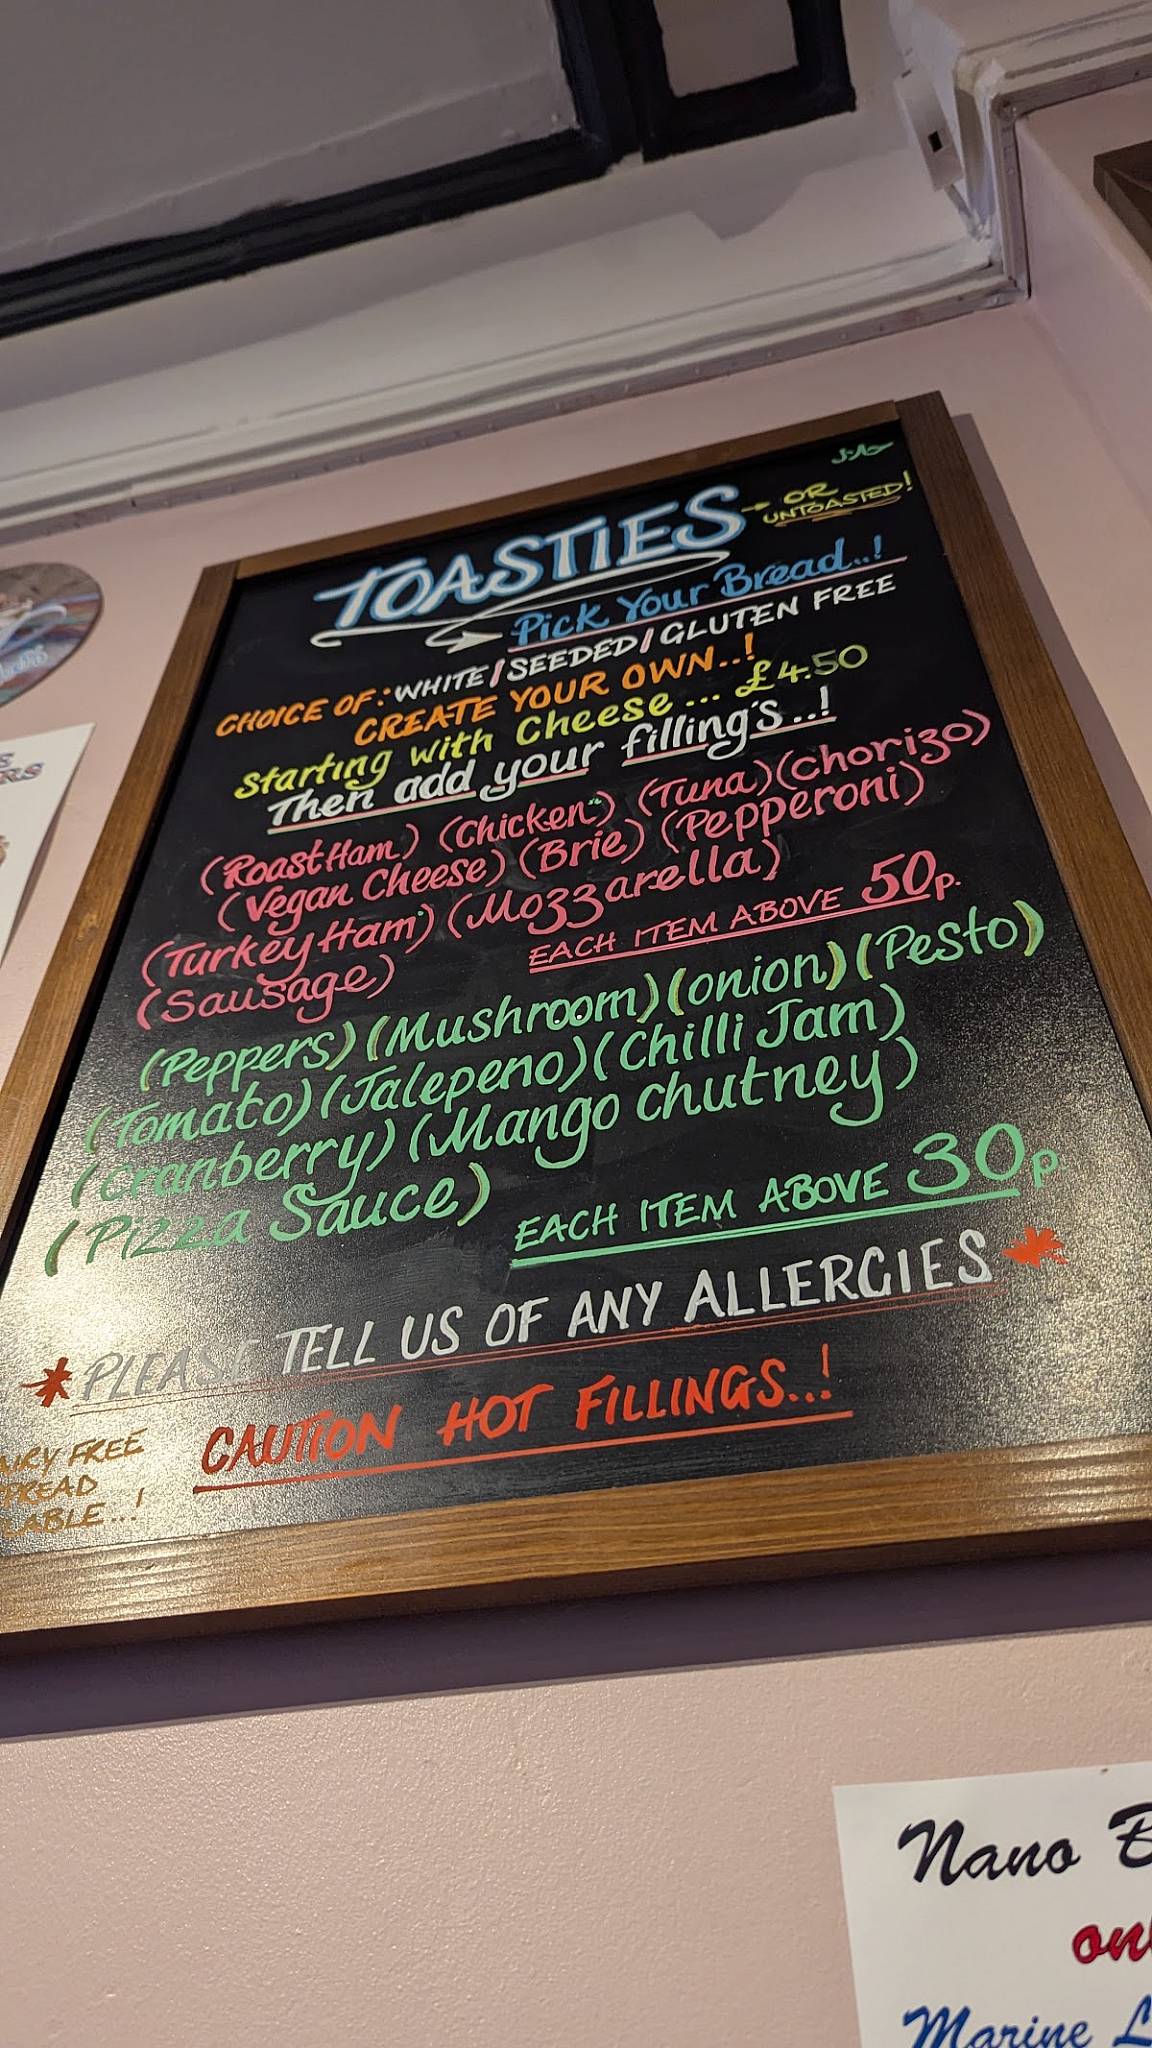 TOASTIES → OR UNTOASTED!
Pick Your Bread..!
CHOICE OF: WHITE/SEEDED/GLUTEN FREE
CREATE YOUR OWN..!
Starting with Cheese... £4.50
Then add your filling's..!
(Roast Ham) (Chicken) (Tuna) (Chorizo)
(Vegan Cheese) (Brie) (Pepperoni)
(Turkey Ham) (Mozzarella)
(Sausage) EACH ITEM ABOVE 50p.
(Peppers) (Mushroom) (onion) (Pesto)
(Tomato) (Jalepeno) (Chilli Jam)
(Cranberry) (Mango chutney)
(Pizza Sauce) EACH ITEM ABOVE 30p
* PLEASE TELL US OF ANY ALLERGIES *
CAUTION HOT FILLINGS..!
FREE
Nano
Marine